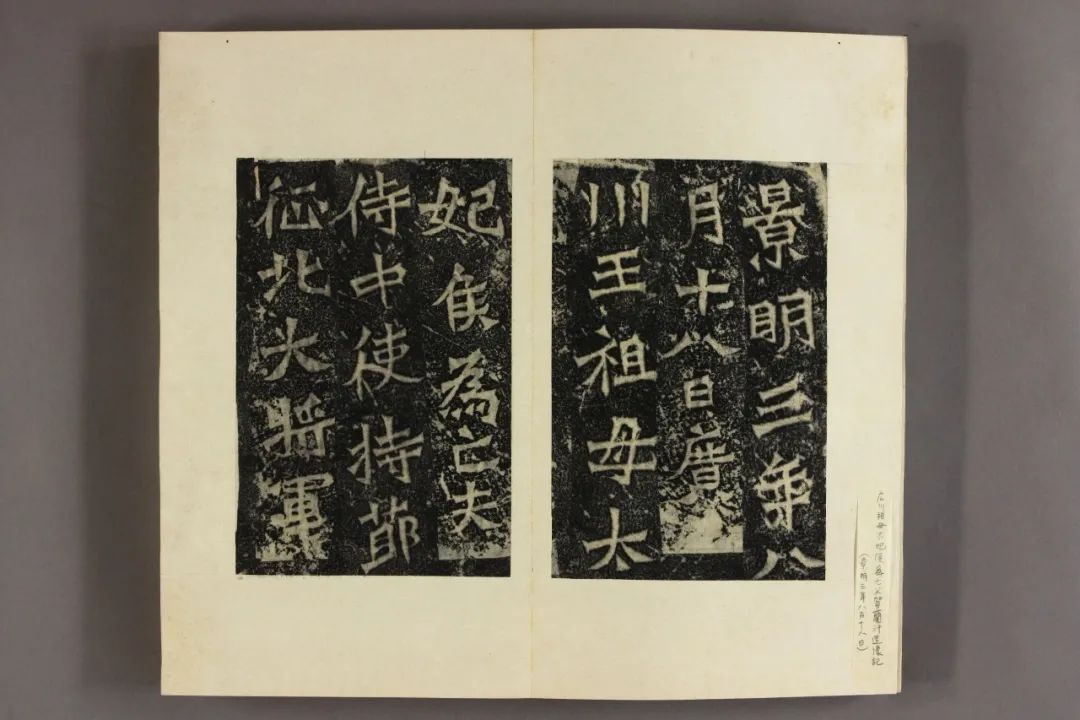 景明三年八
月十八日廣
川王祖母太
妃侯為亡夫
侍中使持節
征北大將軍
広川祖母太妃侯為亡夫賀蘭汗造像記
(景明三年八月十八日)